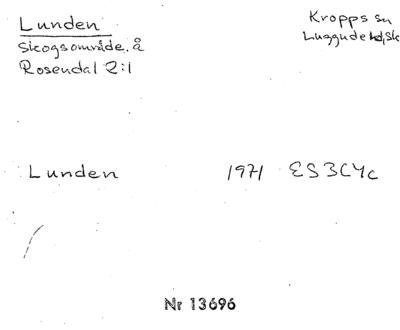 Lunden
Skogsområde. å
Rosendal 2:1
Kropps sn
Luggude hd, Sk
Lunden 1971 ES3CYc
Nr 13696